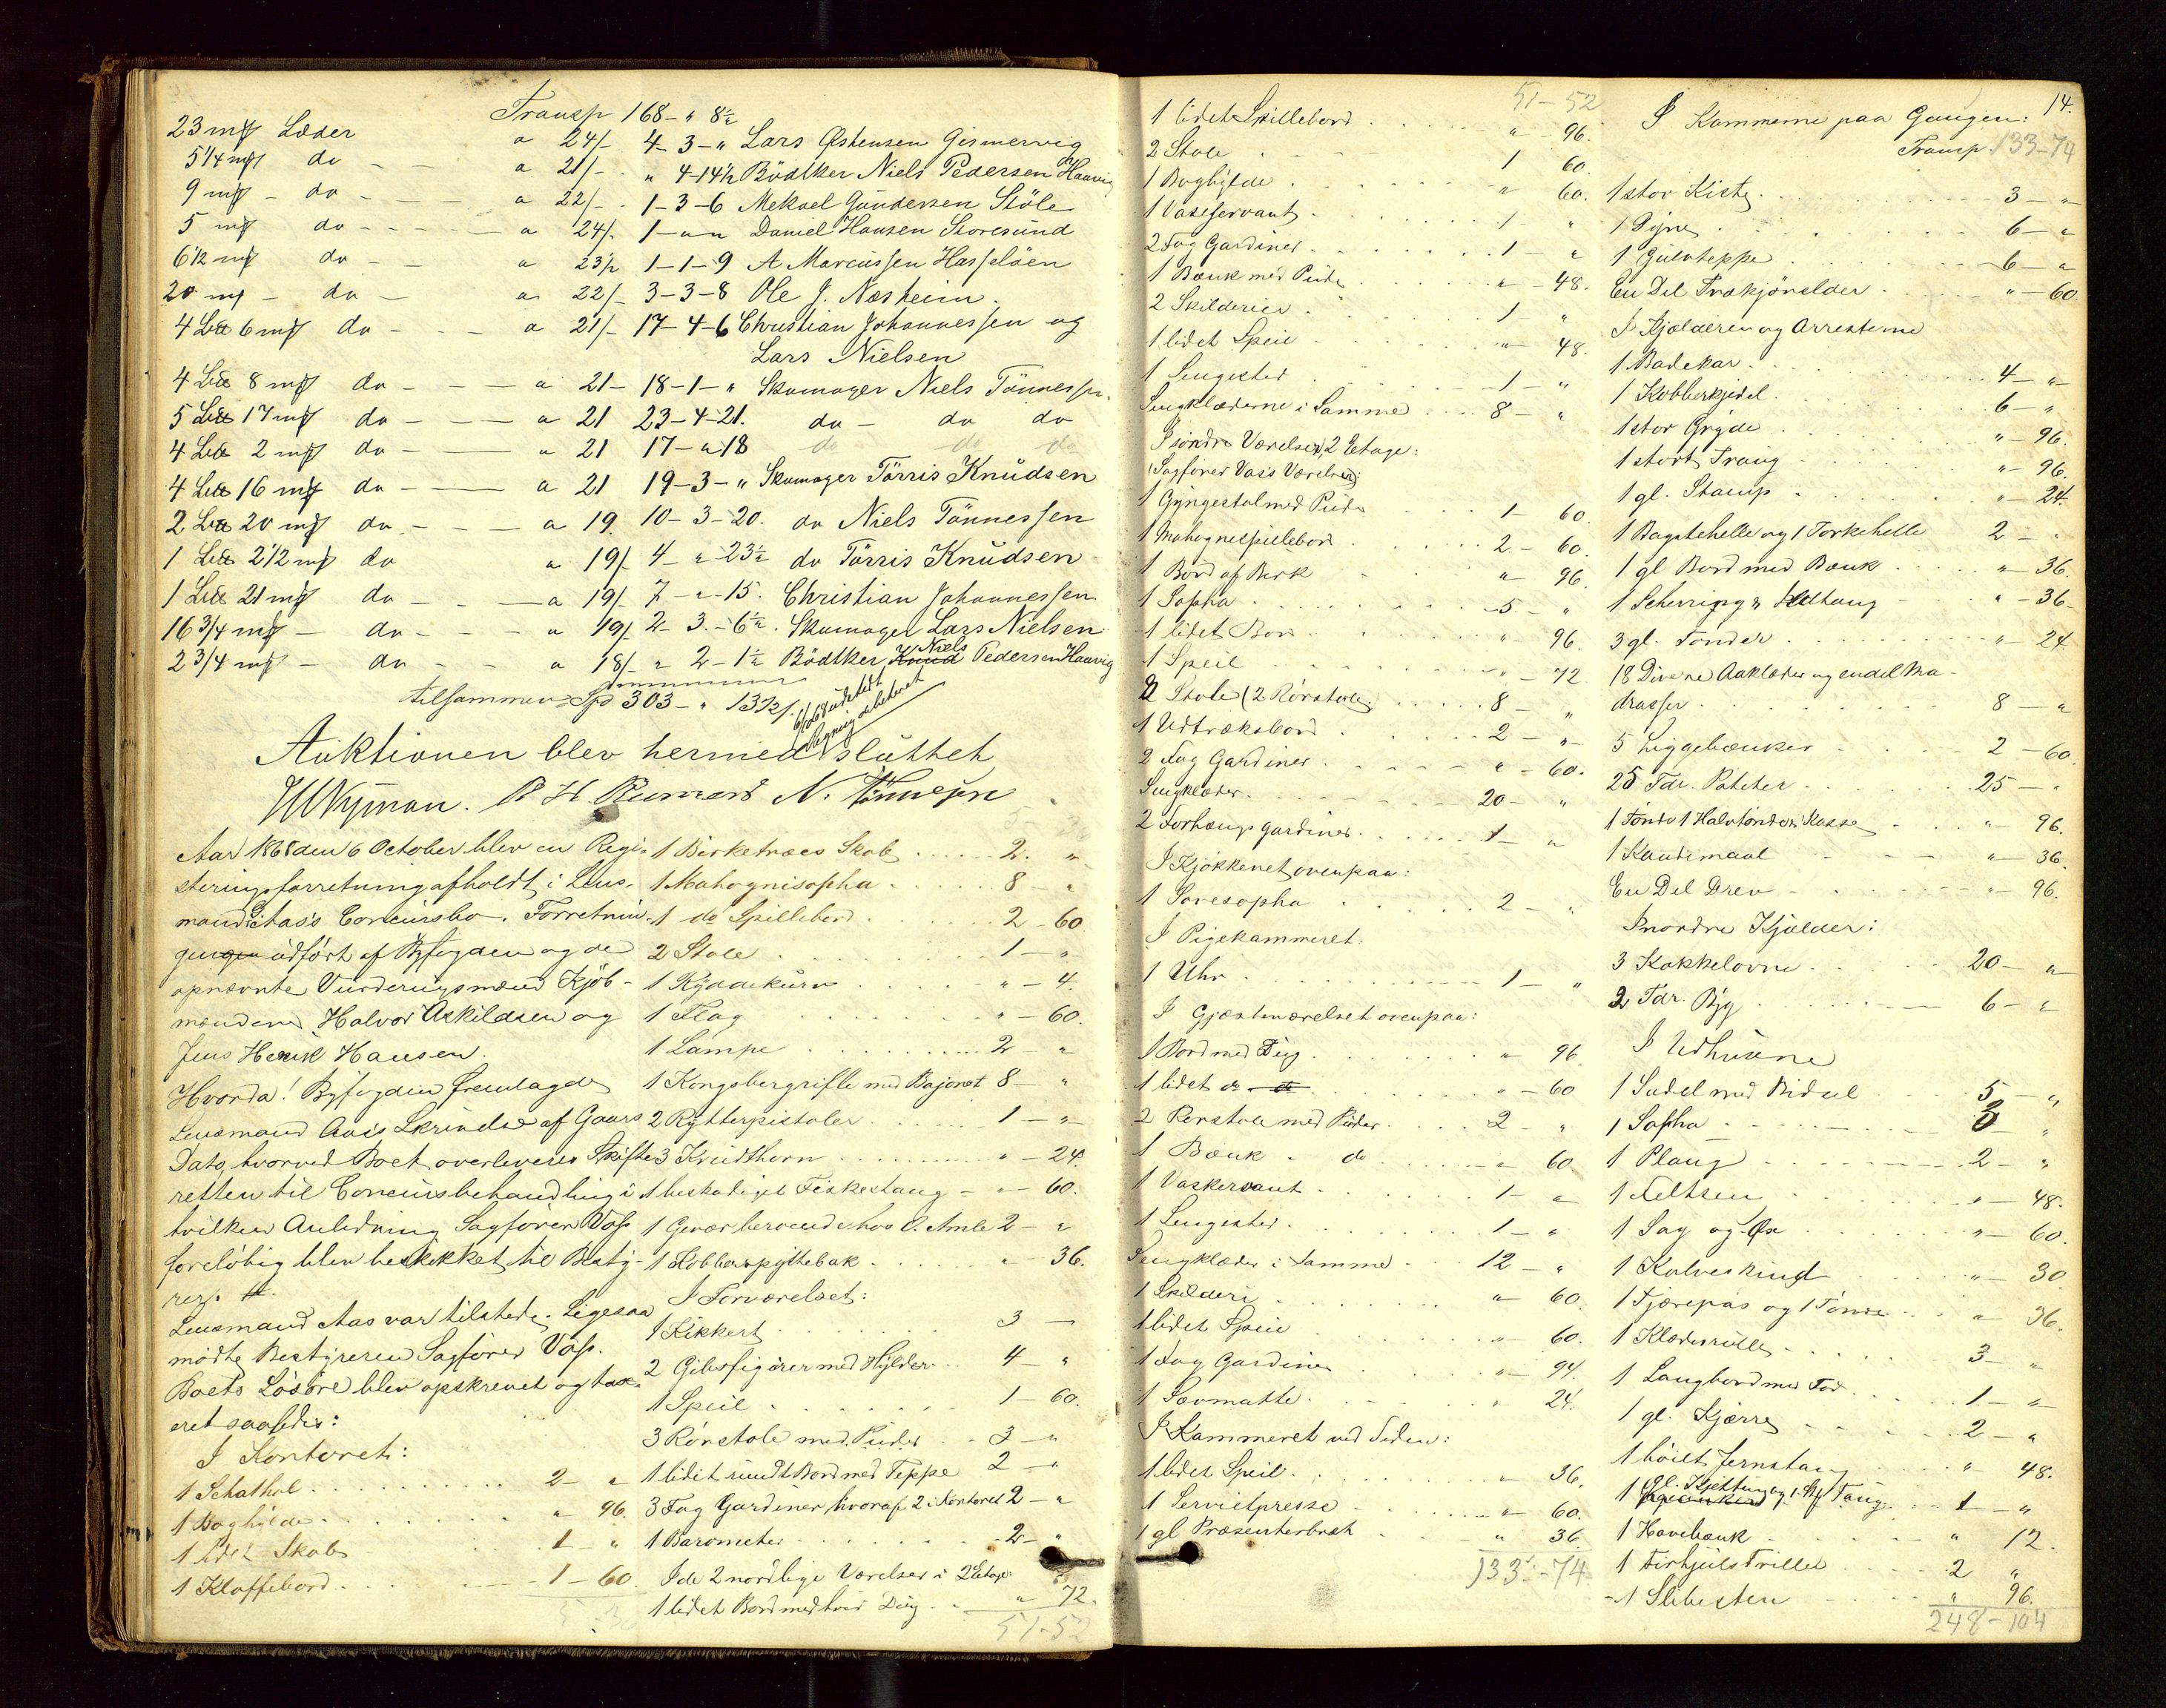 Transp 168 - " 8½
23 mß Læder a 24/- 4-3-" Lars Østensen Gismervig
5 1/4 mß do - a 21/- " 4-14½ Bödtker Niels Pedersen Haavig
9 mß - do - a 22/- 1-3-6 Mekael Gundersen Stöle
5 mß do - a 24/- 1-"-" Daniel Hansen Storesund
6 1/2 mß do - a 23/- 1-1-9 A Marcussen Hasselöen
20 mß - do - a 22/- 3-3-8 Ole J. Næsheim.
4 6 mß do - a 21/- 17-4-6 Christian Johannessen og
Lars Nielsen
4 8 mß do - a 21- 18-1-" Skomager Niels Tönnessen.
5 17 mß do - a 21 23-4-21. do - do do
4 2 mß do - a 21 17-"-18 do do do
4 16 mß do - a 21 19-3-" Skomager Törris Knudsen
2 20 mß do - a 19. 10-3-20. do Niels Tönnessen
1 2 1/2 mß do a 19/- 4-"-23½ do Törris Knudsen
1 21 mß do - a 19/- 7-"-15. Christian Johannessen
16 3/4 mß - do - a 19/- 2-3-6½. Skomager Lars Nielsen
2 3/4 mß - do - a 18/- " 2-1½ Bödtker Knud Niels Pedersen Haavig
tilsammen Spd 303-" 13½/-
Auktionen blev hermed sluttet
N. Tönnessen
Aar 1868 den 6 October blev en Regi-
steringsforretning afholdt i Lens-
mand Aas's Concursbo. Forretnin-
gen udført af Byfogden og de
opnævnte Vurderingsmænd Kjöb-
mændene Halvor Askildsen og
Jens Henrik Hansen.
Hvorda! Byfogden fremlagde
Lensmand Aas's Skrivelse af Gaars
Dato, hvorved Boet overleveres Skifte
retten til Concursbehandling i
hvilken Anledning Sagfører Voss
foreløbig blev beskikket til Besty-
rer.
Lensmand Aas var tilstede. Ligesaa
mödte Bestyreren Sagfører Voss.
Boets Lösöre blev opskrevet og tax-
eret saaledes:
I Kontoret:
1 Schathol 2 - "
1 Boghylde " - 96.
1 lidet Skab 1 - "
1 Klaffebord 1 - 60
1 Birketræes Skab 2. "
1 Mahognisopha 8 - "
1 do Spillebord 2 - 60
2 Stole 1 - "
1 Kyddekurv " - 4.
1 Flag " - 60.
1 Lampe 2 - "
1 Kongsbergrifle med Bajonet 8 - "
2 Rytterpistoler 1 - "
3 Krudthorn " - 24.
1 beskadiget Fiskestang - " - 60.
1 Gevær beroende hos O. Amle 2 - "
1 Kobberspyttebak " - 36.
I Forværelset:
1 Kikkert 3 -
2 Gibsfigurer med Hylder 4 - "
1 Speil 1 - 60.
3 Rörstole med Puder 3 - "
1 lidet rundt Bord med Teppe 2 - "
3 Fag Gardiner, hvoraf 2 i Kontoret 2 - "
1 Barometer 2 - "
I de 2 nordlige Værelser i 2 Etage:
1 lidet Bord med hvid Dug " 72.
51-52
51-52
1 lidet Spillebord " - 96.
2 Stole 1 60.
1 Boghylde " 60.
1 Vaseservant 1 - "
2 Fag Gardiner 1 - "
1 Bænk med Pude " - 48.
2 Skilderier 1 - "
1 lidet Speil " - 48.
1 Sengested 1 - "
Sengklæderne i Samme 8 - "
I söndre Værelser, 2 Etage:
(Sagfører Vos's Værelser):
1 Gyngestol med Pude 1 - 60.
1 Mahognespillebord 2 - 60.
1 Bord af Birk " 96.
1 Sopha 5 - "
1 lidet Bord " 96.
1 Speil " - 72
Stole (2 Rörstole) 8 - "
1 Udtræksbord 2 - "
2 Fag Gardiner " - 60.
Sengklæder 20 - "
2 Forhængsgardiner 1 - "
I Kjökkenet ovenpaa:
1 Sovesopha 2 - "
I Pigekammeret:
1 Uhr 1 - "
I Gjæsteværelset ovenpaa:
1 Bord med Dug " 96
1 lidet do " - 60
2 Rorstole med Puder 2 - "
1 Bænk - do " 60.
1 Vaskervant 1 - "
1 Sengested 1 - "
Sengklæder i Samme 12 - "
1 Skilderi " 60.
1 lidet Speil " 60.
1 Fag Gardiner " - 94.
1 Sovmatte " 24.
I Kammeret ved Siden:
1 lidet Speil " 36.
1 Servietpresse " 60.
1 gl Præsenterbret " 36
133-74
14.
I Kammerne paa Gangen:
Transp. 133-74
1 stor Kiste 3 - "
1 Dyne 6 - "
1 Gulvteppe 6 - "
En Del Trækjörelder " - 60.
I Kjælderen og Arresterne
1 Badekar 4 - "
1 Kobberkjedel 6 - "
1 stor Gryde " - 96.
1 stort Traug " - 96.
1 gl. Stamp " - 24.
1 Bagstehelle og 1 Torkehelle 2 - "
1 gl Bord med Bænk " - 36.
1 " - 36
3 gl. Tönder " - 24
18 Diverse Aaklæder og endel Ma-
drasser 8 - "
5 Liggebænker 2 - 60.
25 Tdr. Poteter 25 - "
1 Tönde 1 Halvtönde 1 Kasse " - 96.
1 Kandemaal " - 36.
En Del Drev " - 96.
I nordre Kjælder:
3 Kakkelovne 20 - "
2 Tdr. Byg 6 - "
I Udhusene
1 Sadel med Bidsel 5 - "
1 Sopha "
1 Ploug 2 - "
1 " - 48.
1 Sag og Øx " - 60.
1 Kalveskind " - 30
1 Tjærepøs og 1 Tönde " 36.
1 Klæderulle 3 - "
1 Langbord med Fod 1 - "
1 gl. Kjærre 2 - "
1 Jernstang " 48.
1 gl. Kjetting og 1 Stk Taug 1 - "
1 Havebænk " 12.
1 Firhjuls Trille 2 "
1 Slibesten " 96.
248-104